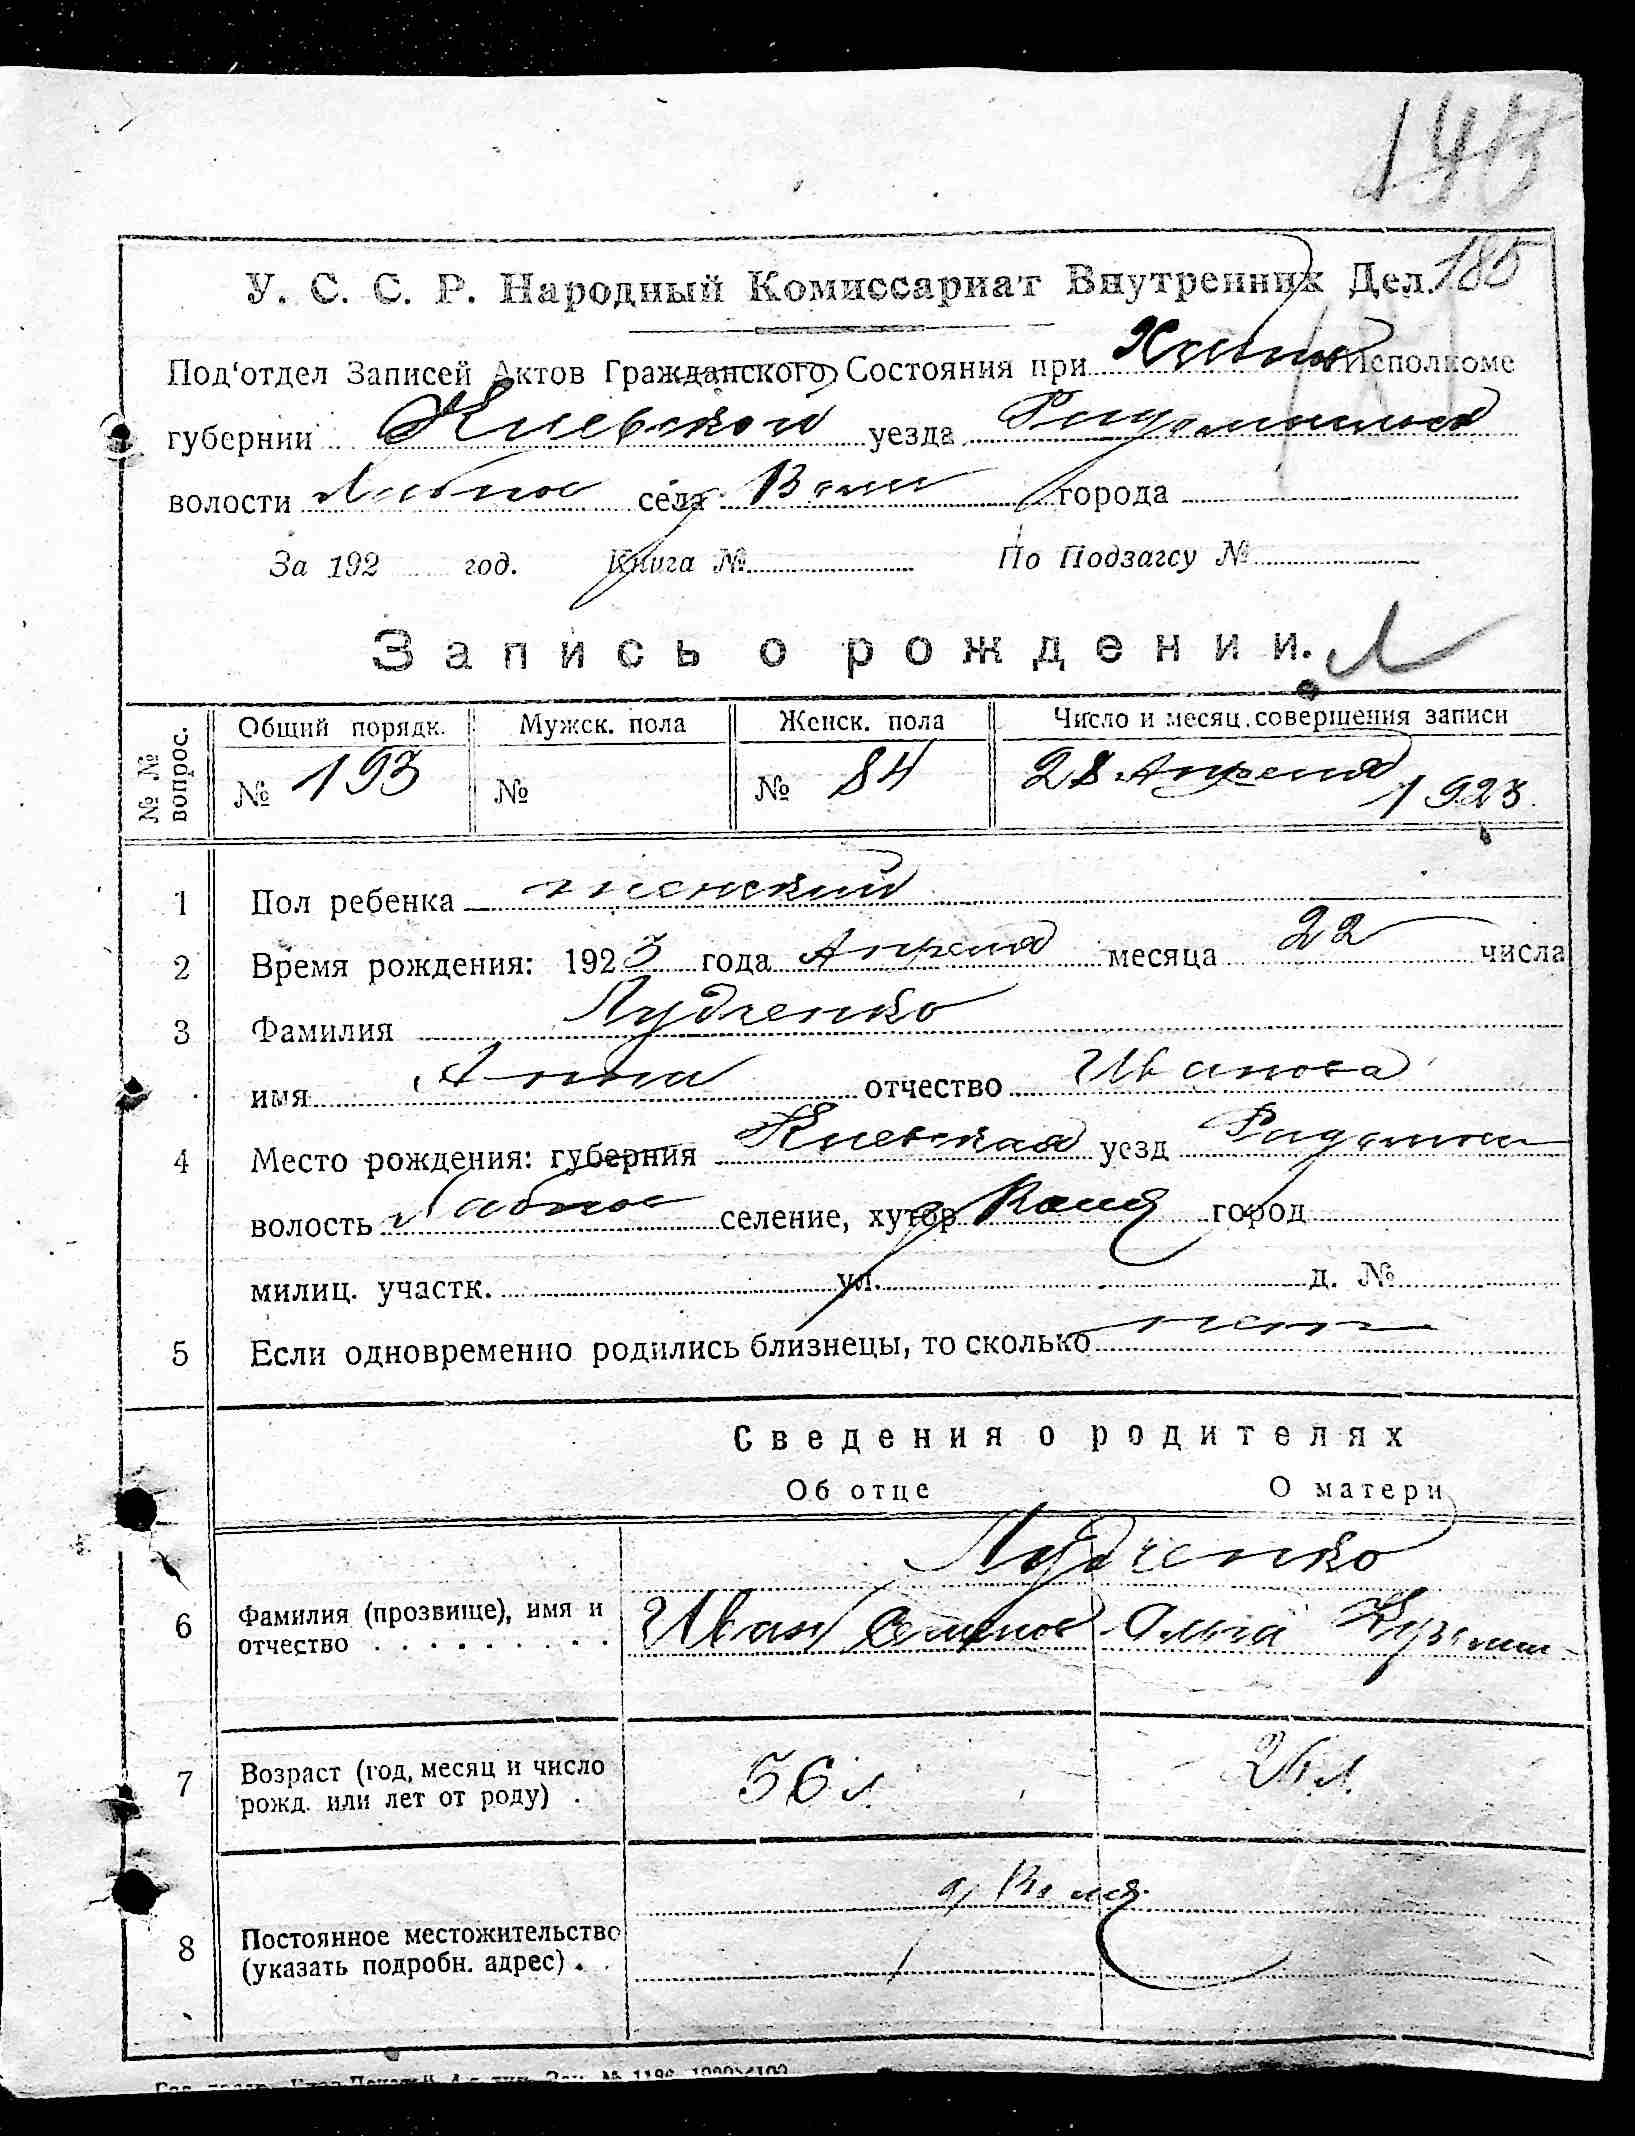 185
У. С. С. Р. Народный Комиссариат Внутренних Дел.
Под'отдел Записей Актов Гражданского Состояния при Исполкоме
губернии Киевской уезда Радомысльск
волости села Воли города
За 192 год. Книга № По Подзагсу №
Запись о рождении.
№ № вопрос. Общий порядк. Мужск. пола Женск. пола Число и месяц совершения записи
№ 193 № № 84 28 Апреля 1923
1 Пол ребенка женский
2 Время рождения: 1923 года Апреля месяца 22 числа
3 Фамилия Лудченко
имя Анна отчество Иванова
4 Место рождения: губерния Киевская уезд Радомы
волость селение, хутор город
милиц. участк. ул. д. №
5 Если одновременно родились близнецы, то сколько нет
Сведения о родителях
Об отце О матери
Лудченко
6 Фамилия (прозвище), имя и Иван Семенов Ольга Кузьмин
отчество . . . . . . . . .
7 Возраст (год, месяц и число 36 л. л.
рожд. или лет от роду) .
8 Постоянное местожительство
(указать подробн. адрес) . .